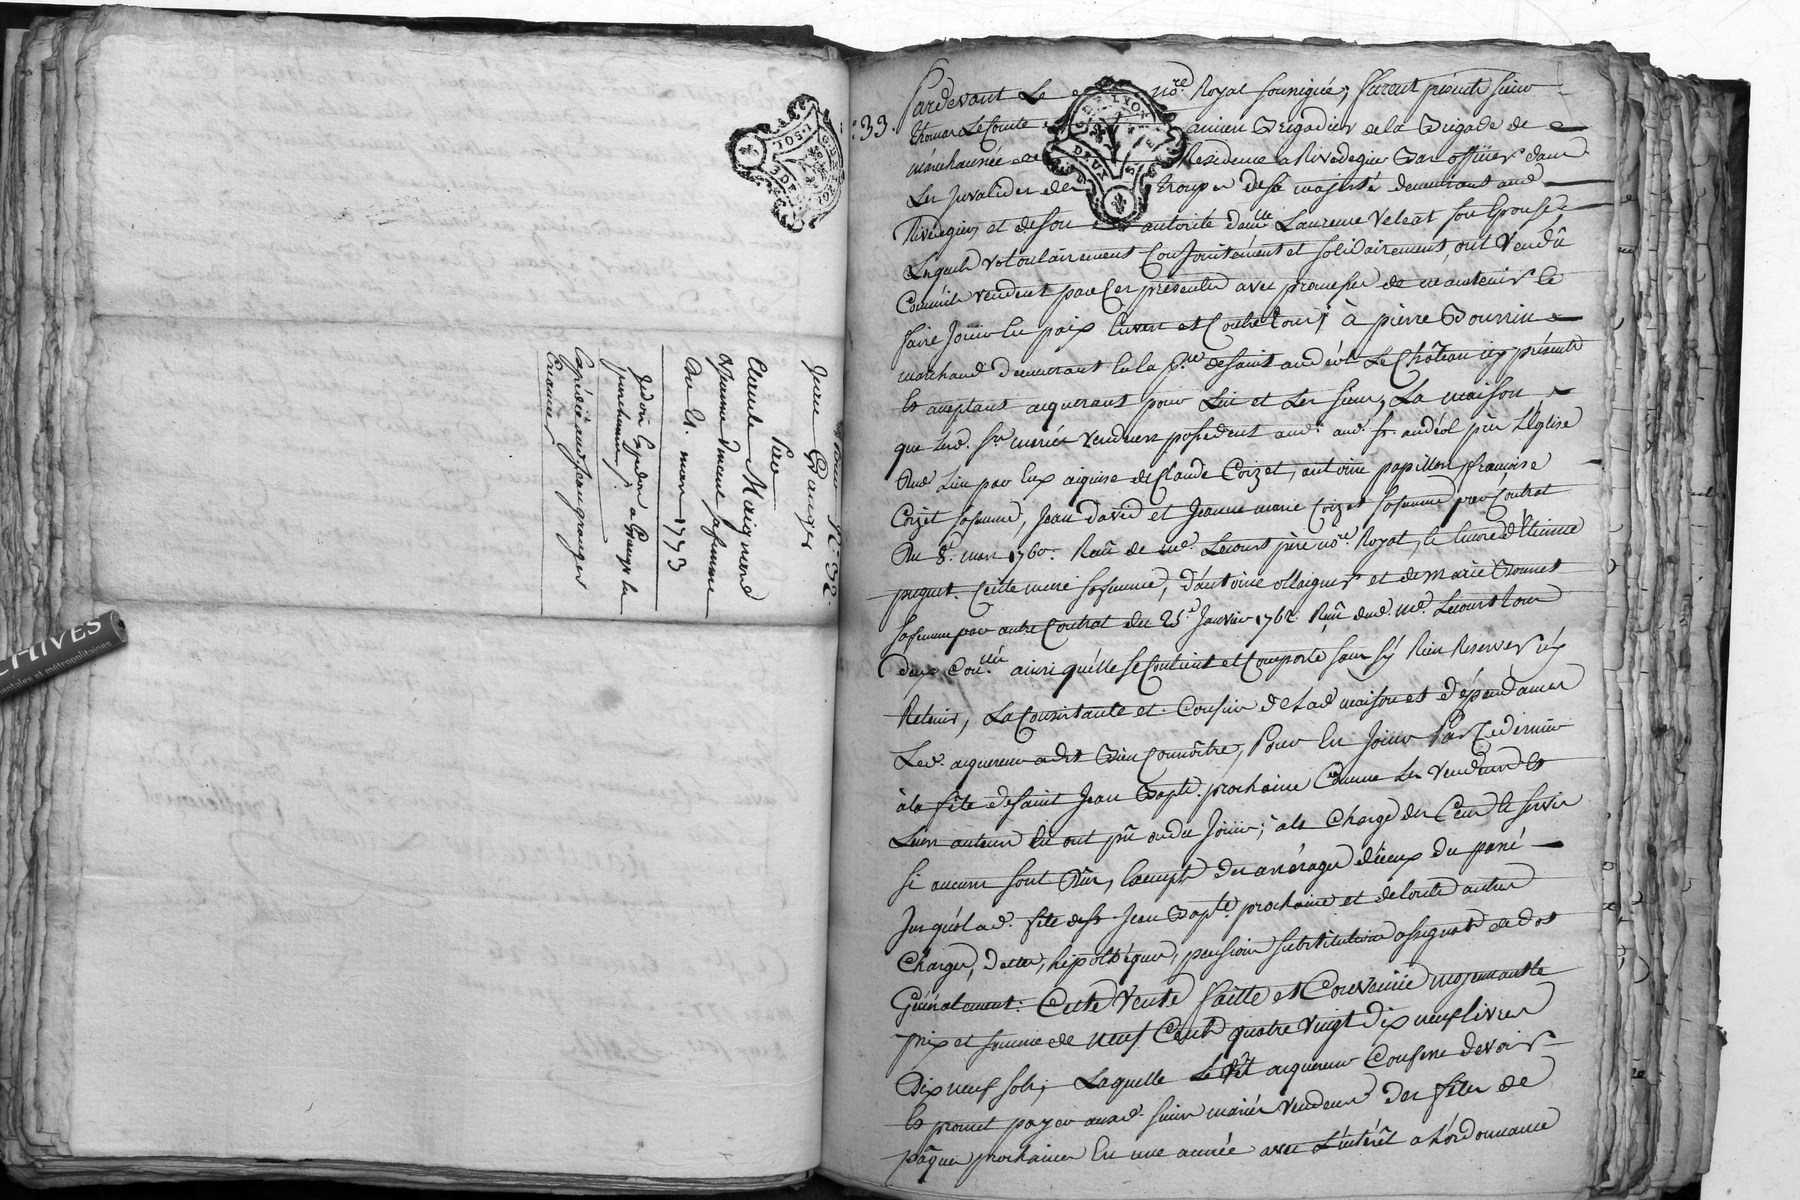 N.° 32.
Jean Granger
Pre
Claude Maignend
Etienne Vincent sa femme
Du 21. mars 1773
Expédié aud. Jean granger
CHIVES
entales et métropolitaines
33.
Pardevant Le nore. Royal soussigné; furent présents sieur
thomas LeComte ancien Brigadier de la Brigade de
maréchaussée de Residence a Rivedegier Bas officier dans
Les Invalides des troupes de sa majesté demeurant aud.
Rivedegier et de son autorité demlle Laurence Veleat son Epouse,
Lesquels volontairement Conjointement et solidairement, ont Vendû
Comm'ils vendent par Ces présentes avec promesses de maintenir le
faire Jouir En paix Envers et Contre tous; à pierre Bourrin
marchand demeurant En la psse de saint andéol Le Château icy présent
Et aceptant aquerant pour Lui et Les siens, La maison
que Lesd. srs mariés Vendeurs possedent aud. st. andéol près L'Eglise
Dud. Lieu par Eux aquise de Claude Coizet, antoine papillon, francoise
Coizet sa femme, Jean David et Jeanne marie Coizet sa femme par Contrat
Du 8. mars 1760. Reçû de me. Lecourt père nore Royal, & Encore d'Etienne
sa femme, d'antoine ollaignier et de marie Bonnet
sa femme par autre Contrat du 25e Janvier 1762. Reçû dud. me. Lecourt tous
deux ainsi qu'elle se Contient et Comporte sans s'y Rien Reserver ny
Retenir, La Consistance et Confins de Lad. maison et dépendances
Led. aquereur a dit Bien Connoître, Pour En Jouir Par Ce dernier
à la fête de saint Jean Bapte. prochaine Comme Les Vendeurs Et
Leurs auteurs En ont pû ou dû Jouir; à la Charge des Cens & servis
si aucuns sont Dûs, Exempte des arrérages d'iceux du passé
Jusqu'à Lad. fête de st. Jean Bapte. prochaine et de toutes autres
Charges, dettes, hipothèques, pension substitution assignats de dot
Généralement. Cette Vente faitte et Convenüe moyennant le
prix et somme de neuf Cents quatre vingt dix neuf livres
Dix neuf sols; Laquelle Ledit aquereur Confesse devoir
Et promet payer auxd. sieurs mariés Vendeurs des fêtes de
pâques prochaines En une année avec L'intérêt a L'ordonnance